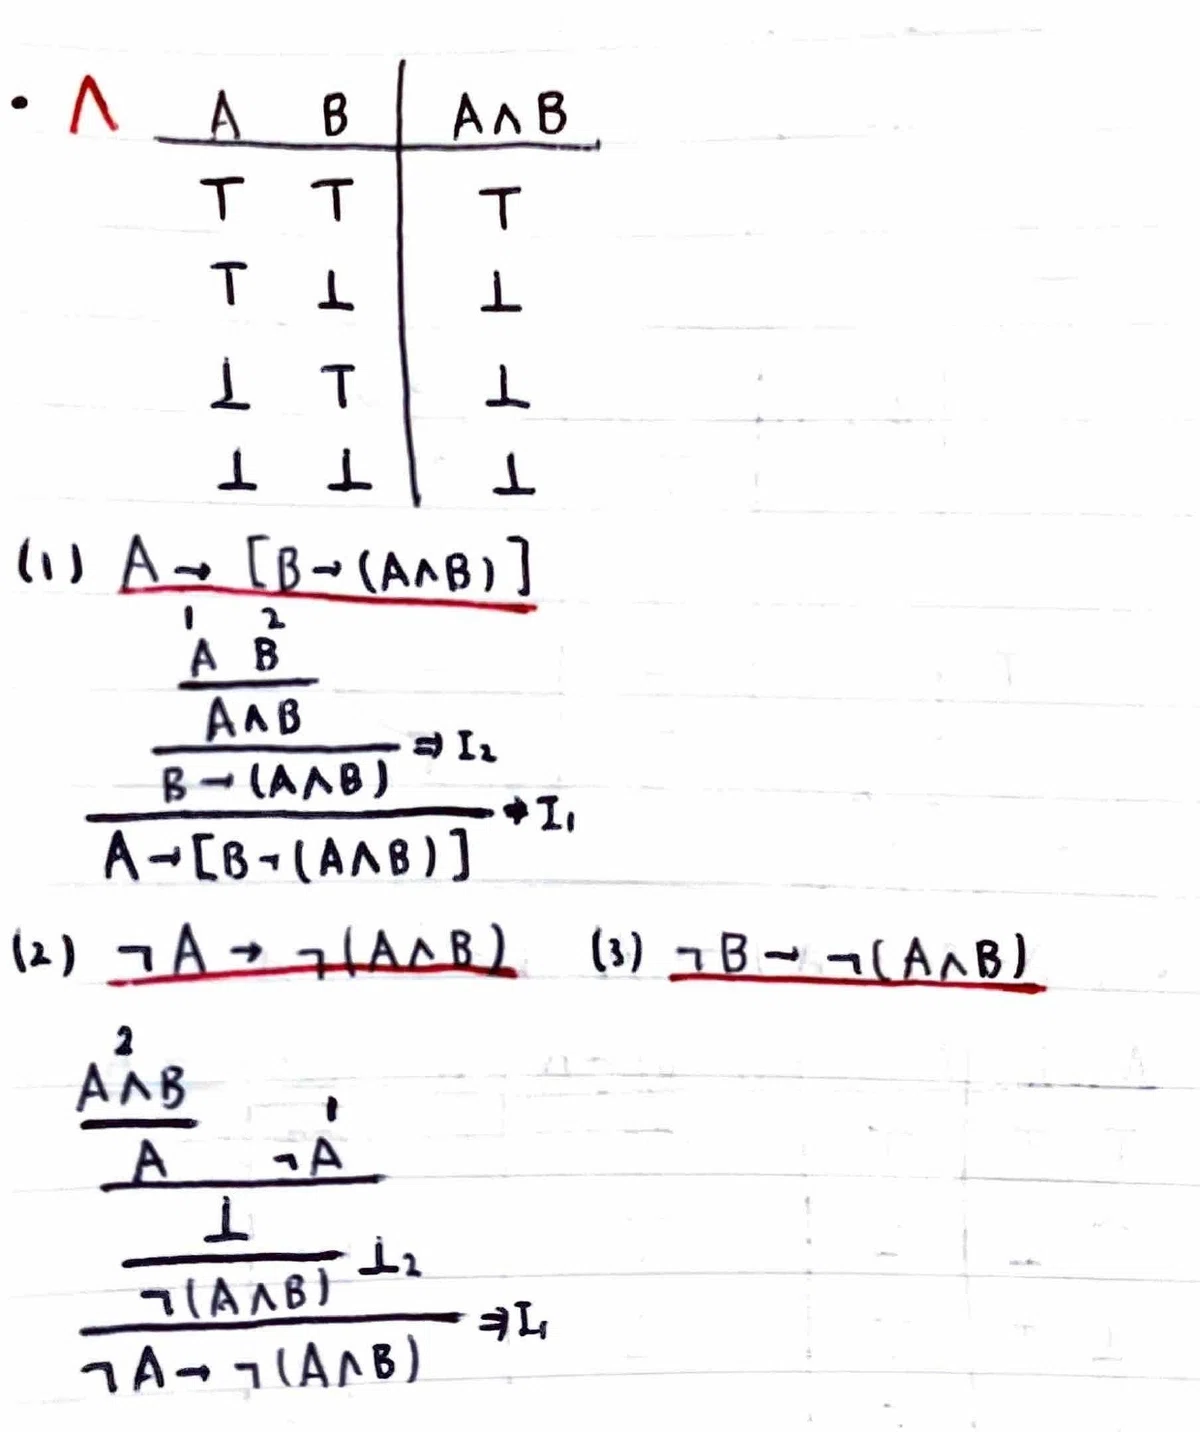 • ∧ A B A∧B
T T T
T ⊥ ⊥
⊥ T ⊥
⊥ ⊥ ⊥
(1) A → [B → (A∧B)]
1 2
A B
A∧B
⇒ I₂
B → (A∧B)
→ I₁
A → [B → (A∧B)]
(2) ¬A → ¬(A∧B) (3) ¬B → ¬(A∧B)
2
A∧B
1
A ¬A
⊥
⊥₂
¬(A∧B)
⇒ I₁
¬A → ¬(A∧B)